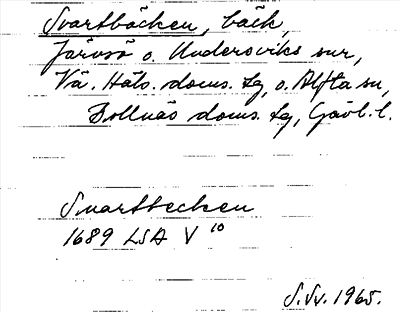 Svartbäcken, bäck,
Järvsö o. Undersviks snr,
Vä. Häls. doms. lg, o. Alfta sn,
Bollnäs doms. lg, Gävl. l.
Suartbecken
1689 LSA V 10
S.Sv. 1965.